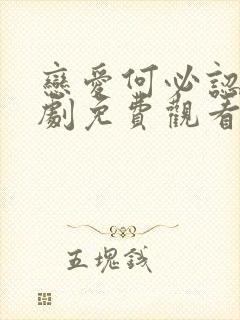 戀愛何必認
劇免費觀看
五塊錢